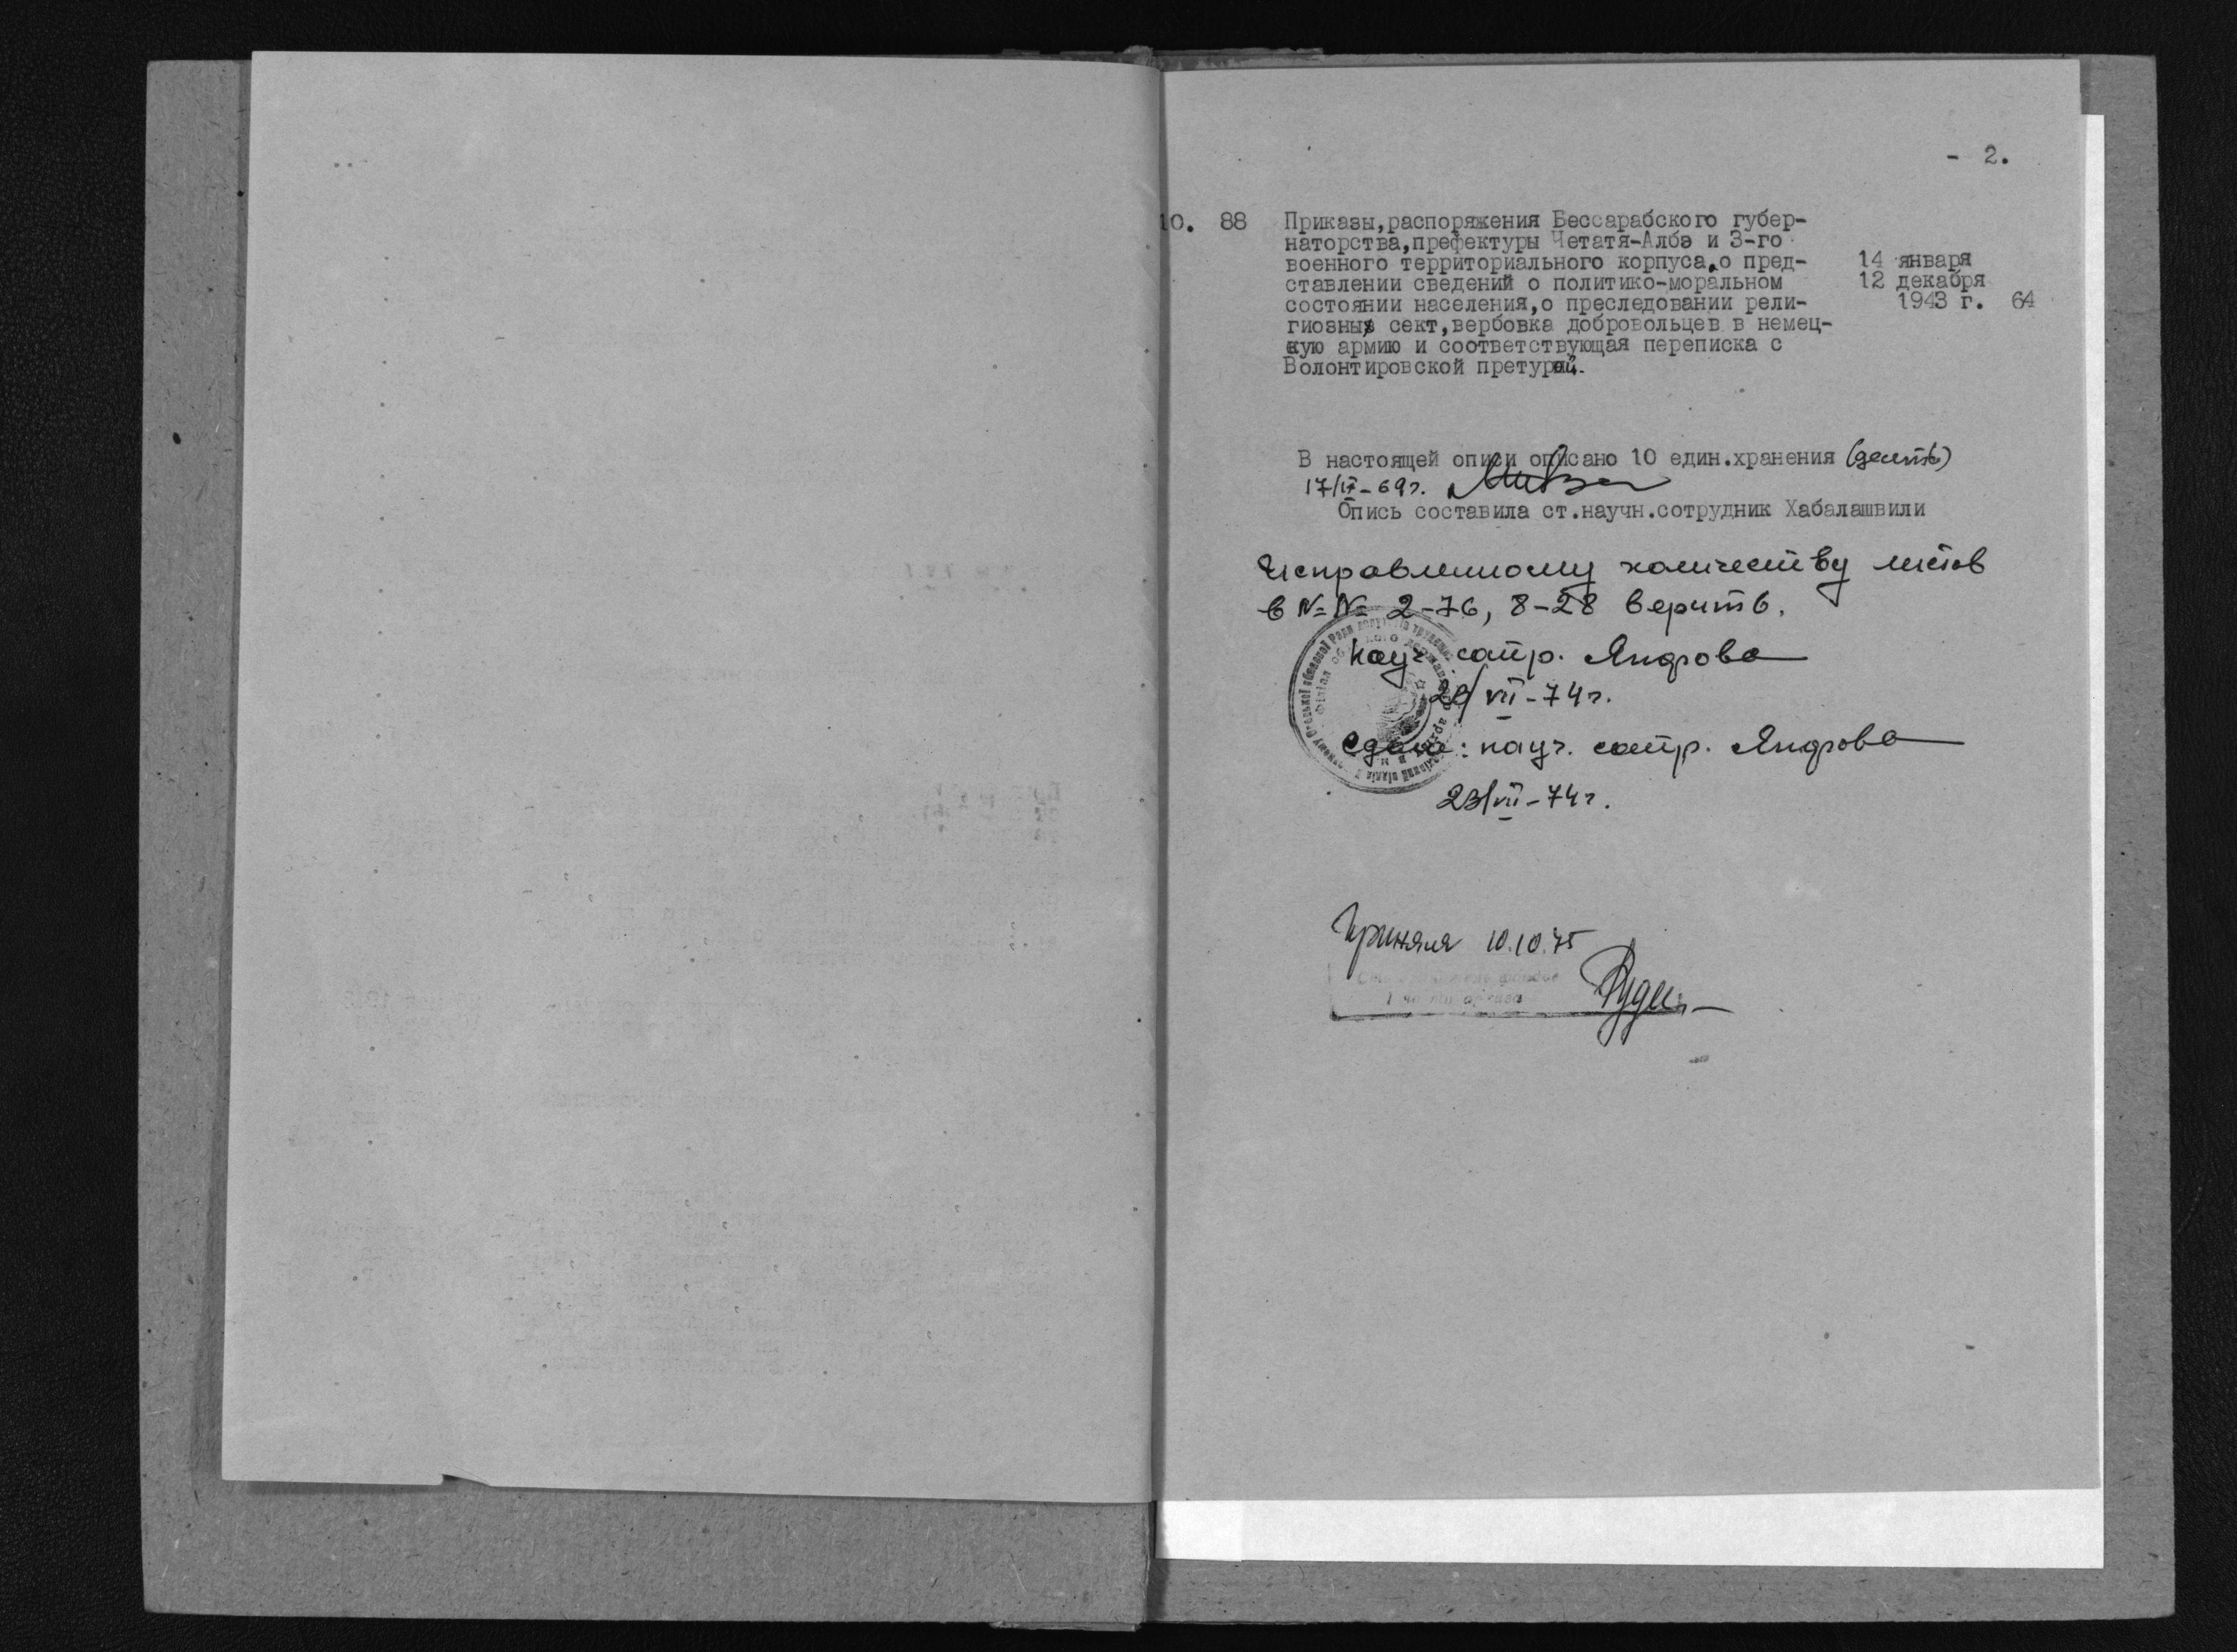 - 2.
10. 88 Приказы,распоряжения Бессарабского губер-
наторства,префектуры Четатя-Албэ и 3-го
военного территориального корпуса,о пред- 14 января
ставлении сведений о политико-моральном 12 декабря
состоянии населения,о преследовании рели- 1943 г. 64
гиозных сект,вербовка добровольцев в немец-
кую армию и соответствующая переписка с
Волонтировской претурой.
В настоящей описи описано 10 един.хранения (десять)
17/IX-69г.
Опись составила ст.научн.сотрудник Хабалашвили
Исправленному количеству листов
в №№ 2-76, 8-28 верить.
Науч. сотр.
/VII-74г.
Сдала: науч. сотр.
23/VII-74г.
Приняла 10.10.75